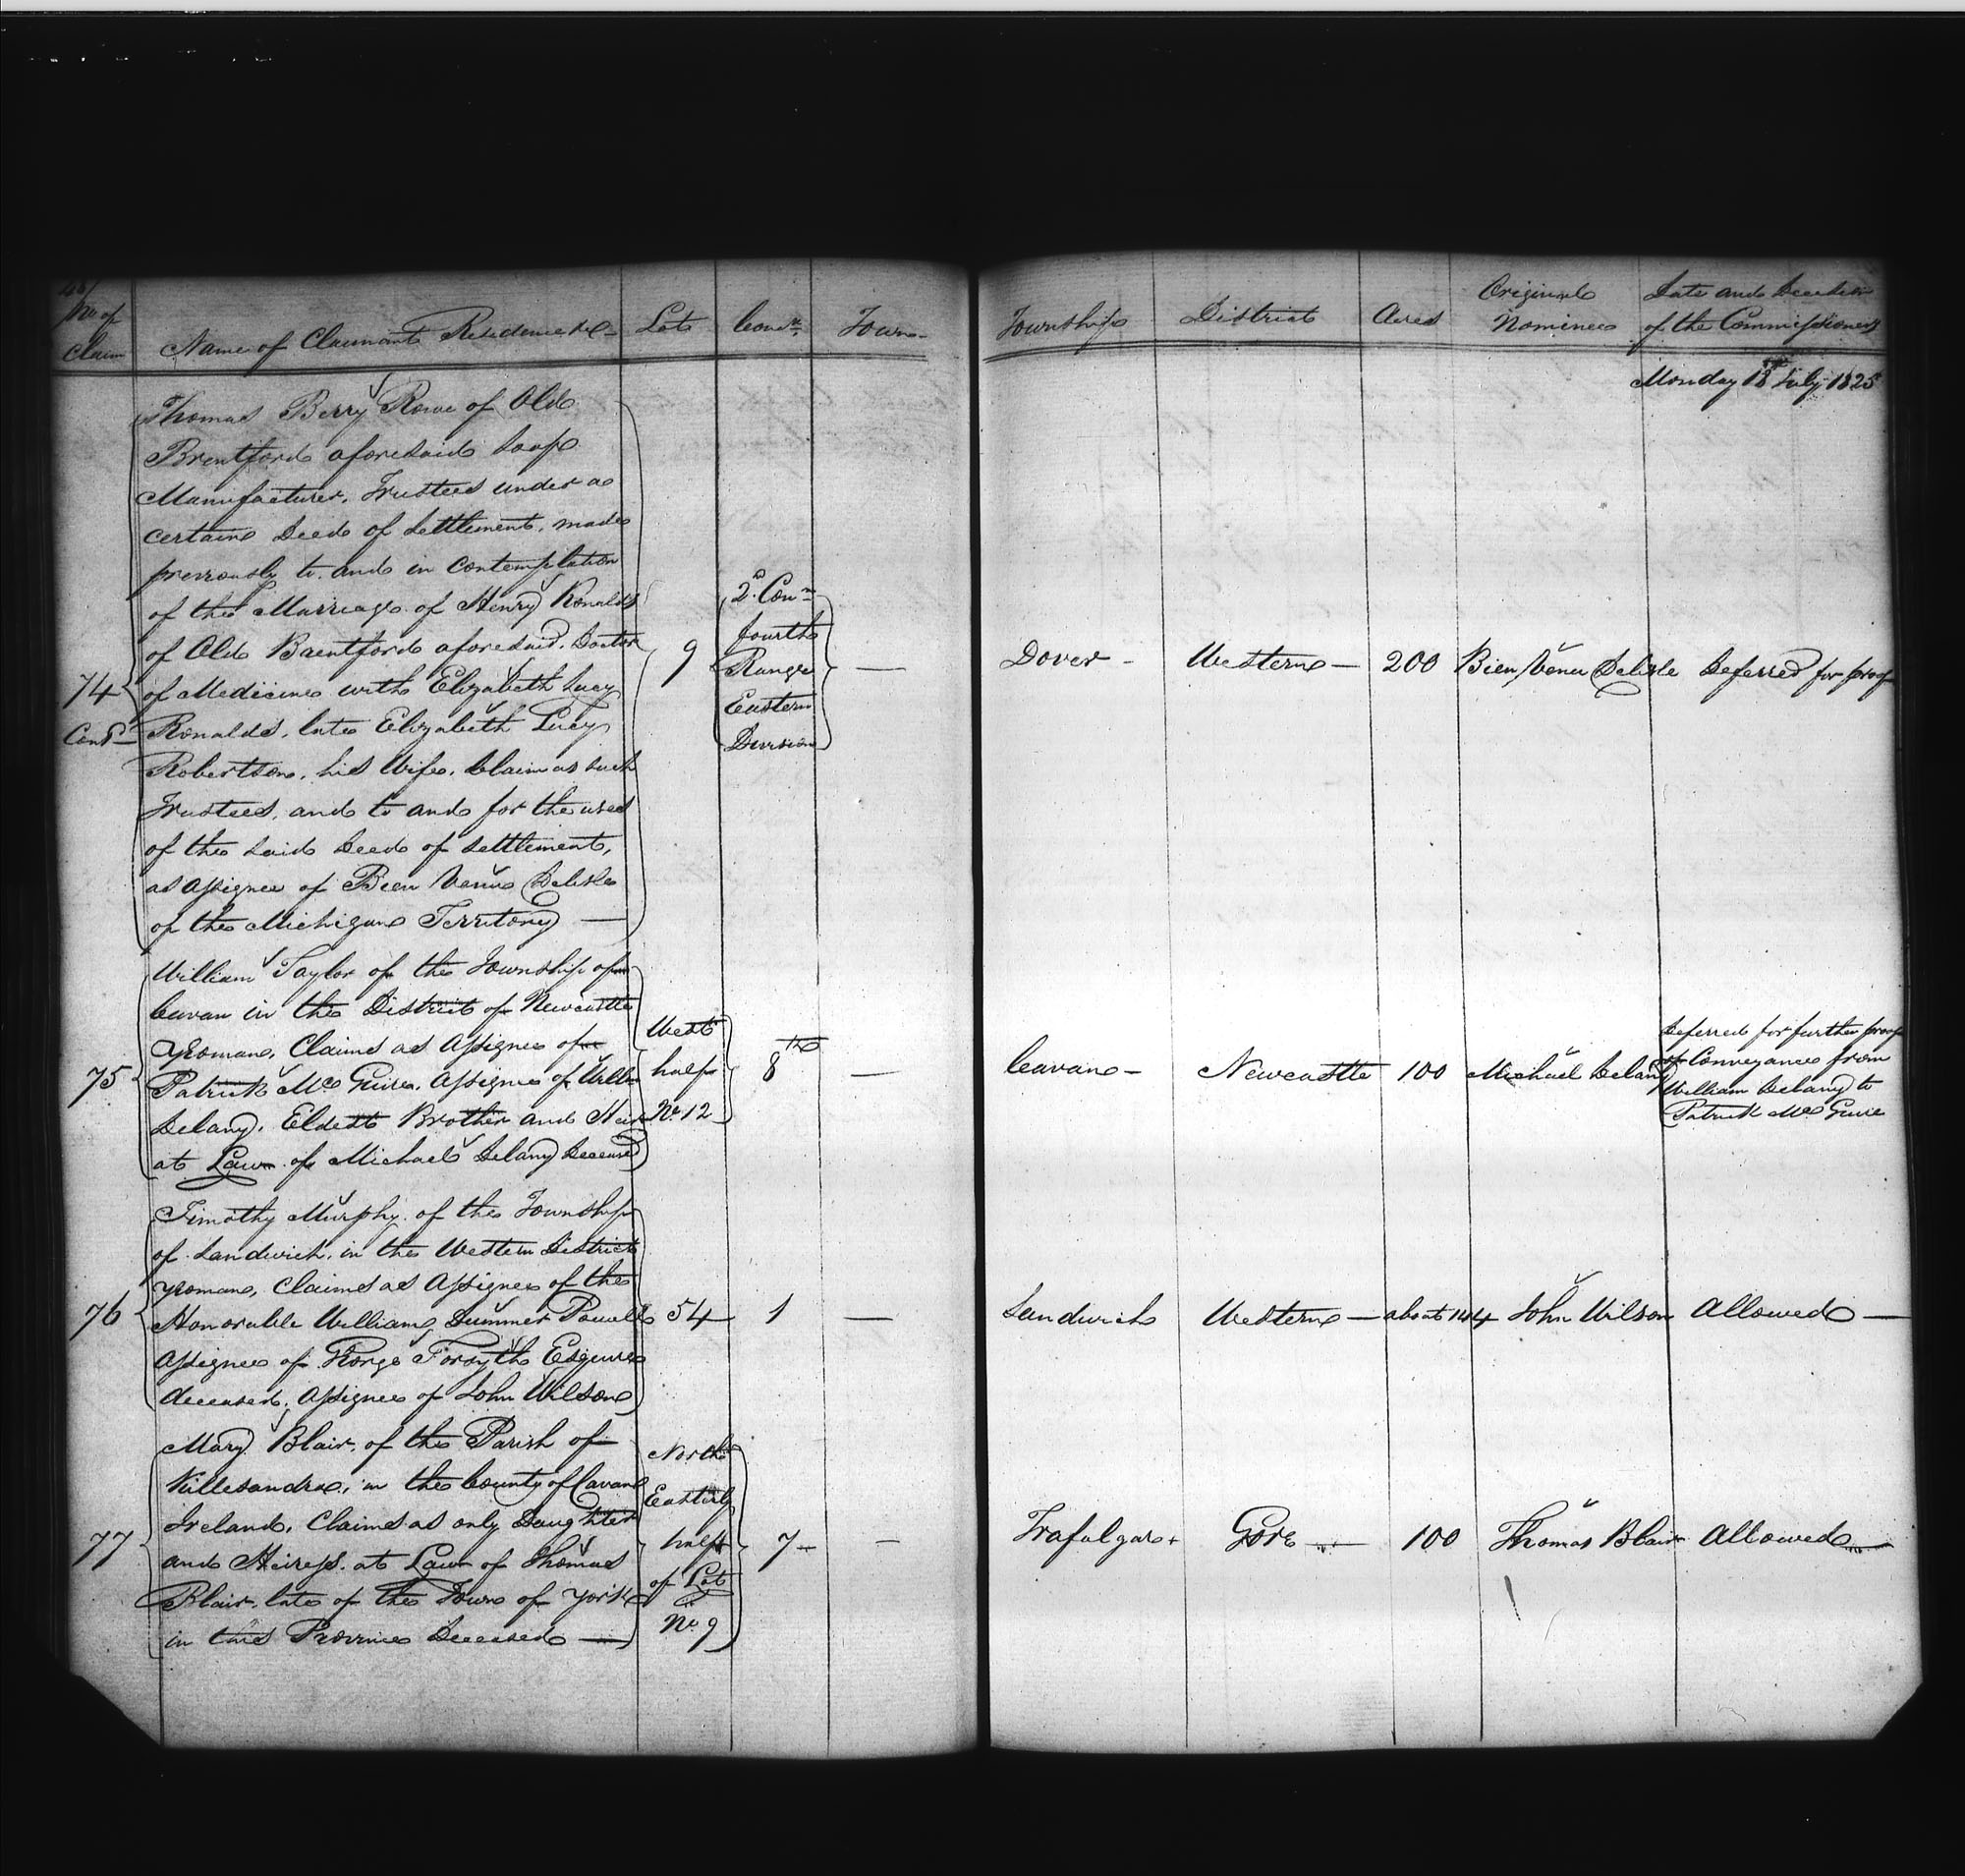 No of
Claim
Name of Claimant Residence &c
Lot
Conn
Town
Township
District
Acres
Original
Nominee
Date and Decision
of the Commissioners
Monday 18th July 1825
74
Contd
Thomas Berry Rowe of Old
Brentford aforesaid Soap
Manufacturer, Trustees under a
certain Deed of Settlement, made
previously to and in Contemplation
of the Marriage of Henry Ronalds
of Old Brentford aforesaid, Doctor
of Medicine with Elizabeth Lucy
Ronalds, late Elizabeth Lucy
Robertson, his Wife, Claim as such
Trustees, and to and for the uses
of the said Deed of Settlement,
as Assignee of Bien Venue Delisle
of the Michigan Territory —
9
2d Conn
fourth
Range
Eastern
Division
—
Dover -
Western —
200
Bien Venu Delisle
Deferred for proof
75
William Taylor of the Township of
Cavan in the District of Newcastle
Yeoman, Claims as Assignee of
Patrick Mc Guire, Assignee of Willm
Delany, Eldest Brother and Heir
at Law of Michael Delany Deceased
West
half
No 12
8th
—
Cavan -
Newcastle
100
Michael Delany
Deferred for further proof
of Conveyance from
William Delany to
Patrick Mc Guire
76
Timothy Murphy of the Township
of Sandwich, in the Western District
Yeoman, Claims as Assignee of the
Honorable William Dummer Powell
Assignee of George Forsyth Esquire
deceased, Assignee of John Wilson
54
1
—
Sandwich
Western —
about 144
John Wilson
Allowed —
77
Mary Blair, of the Parish of
Killesandra, in the County of Cavan
Ireland, Claims as only Daughter
and Heiress at Law of Thomas
Blair late of the Town of York
in this Province Deceased —
North
Easterly
half
of Lot
No 9
7 -
—
Trafalgar
Gore —
100
Thomas Blair
Allowed —